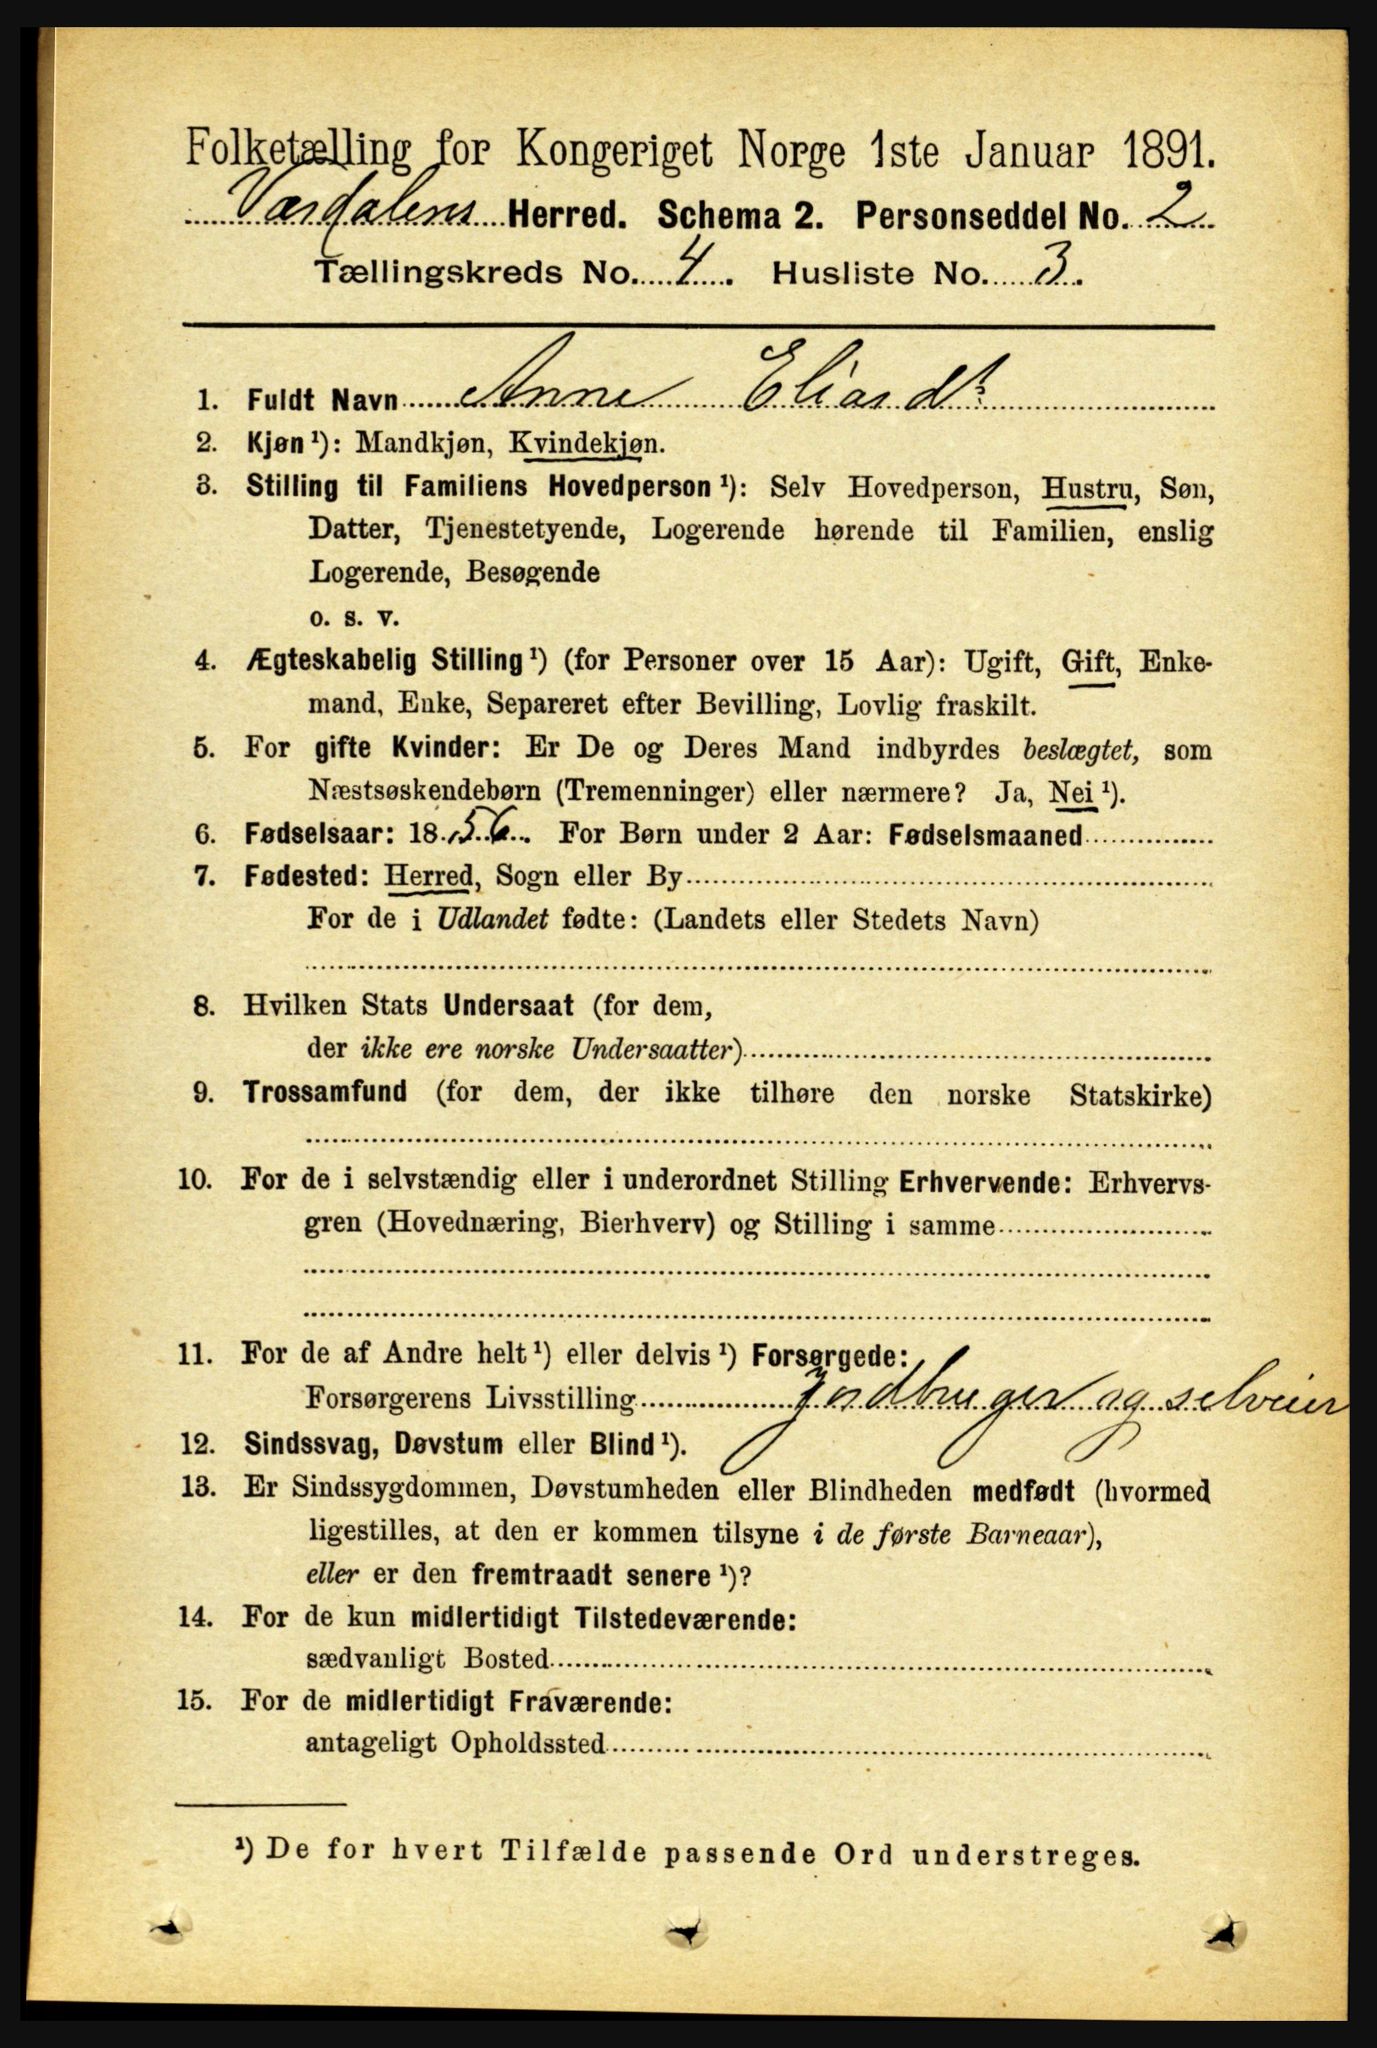 Folketælling for Kongeriget Norge 1ste Januar 1891.
Værdalens Herred. Schema 2. Personseddel No. 2
Tællingskreds No. 4. Husliste No. 3.
1. Fuldt Navn Anne Eliasdt.
2. Kjøn ¹): Mandkjøn, Kvindekjøn.
3. Stilling til Familiens Hovedperson ¹): Selv Hovedperson, Hustru, Søn,
Datter, Tjenestetyende, Logerende hørende til Familien, enslig
Logerende, Besøgende
o. s. v.
4. Ægteskabelig Stilling ¹) (for Personer over 15 Aar): Ugift, Gift, Enke-
mand, Enke, Separeret efter Bevilling, Lovlig fraskilt.
5. For gifte Kvinder: Er De og Deres Mand indbyrdes beslægtet, som
Næstsøskendebørn (Tremenninger) eller nærmere? Ja, Nei ¹).
6. Fødselsaar: 1856. For Børn under 2 Aar: Fødselsmaaned
7. Fødested: Herred, Sogn eller By
For de i Udlandet fødte: (Landets eller Stedets Navn)
8. Hvilken Stats Undersaat (for dem,
der ikke ere norske Undersaatter)
9. Trossamfund (for dem, der ikke tilhøre den norske Statskirke)
10. For de i selvstændig eller i underordnet Stilling Erhvervende: Erhvervs-
gren (Hovednæring, Bierhverv) og Stilling i samme
11. For de af Andre helt ¹) eller delvis ¹) Forsørgede:
Forsørgerens Livsstilling Jordbruger og selveier
12. Sindssvag, Døvstum eller Blind ¹).
13. Er Sindssygdommen, Døvstumheden eller Blindheden medfødt (hvormed
ligestilles, at den er kommen tilsyne i de første Barneaar),
eller er den fremtraadt senere ¹)?
14. For de kun midlertidigt Tilstedeværende:
sædvanligt Bosted
15. For de midlertidigt Fraværende:
antageligt Opholdssted
¹) De for hvert Tilfælde passende Ord understreges.